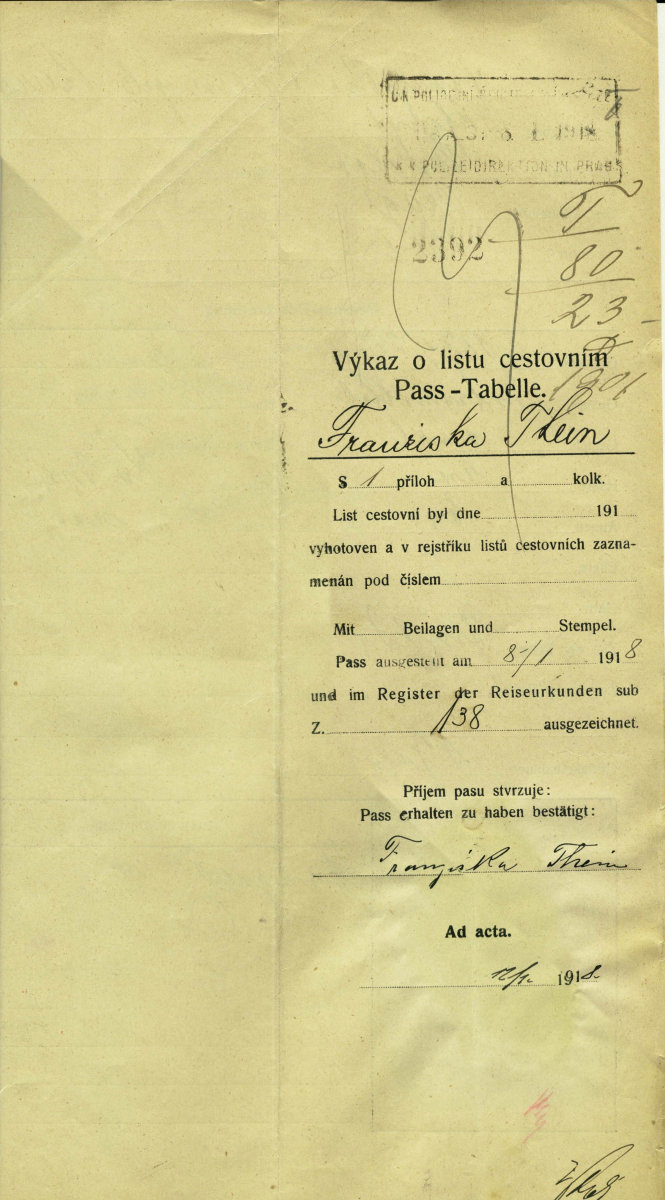 POLIZEIDIREKTION IN PRAG
2392
T
80
23
Výkaz o listu cestovním
Pass-Tabelle.
Franziska Thein
S 1 příloh a kolk.
List cestovní byl dne 191
vyhotoven a v rejstříku listů cestovních zazna-
menán pod číslem
Mit Beilagen und Stempel.
Pass ausgestellt am 8/1 1918
und im Register der Reiseurkunden sub
Z. 138 ausgezeichnet.
Příjem pasu stvrzuje:
Pass erhalten zu haben bestätigt:
Franziska Thein
Ad acta.
1918.